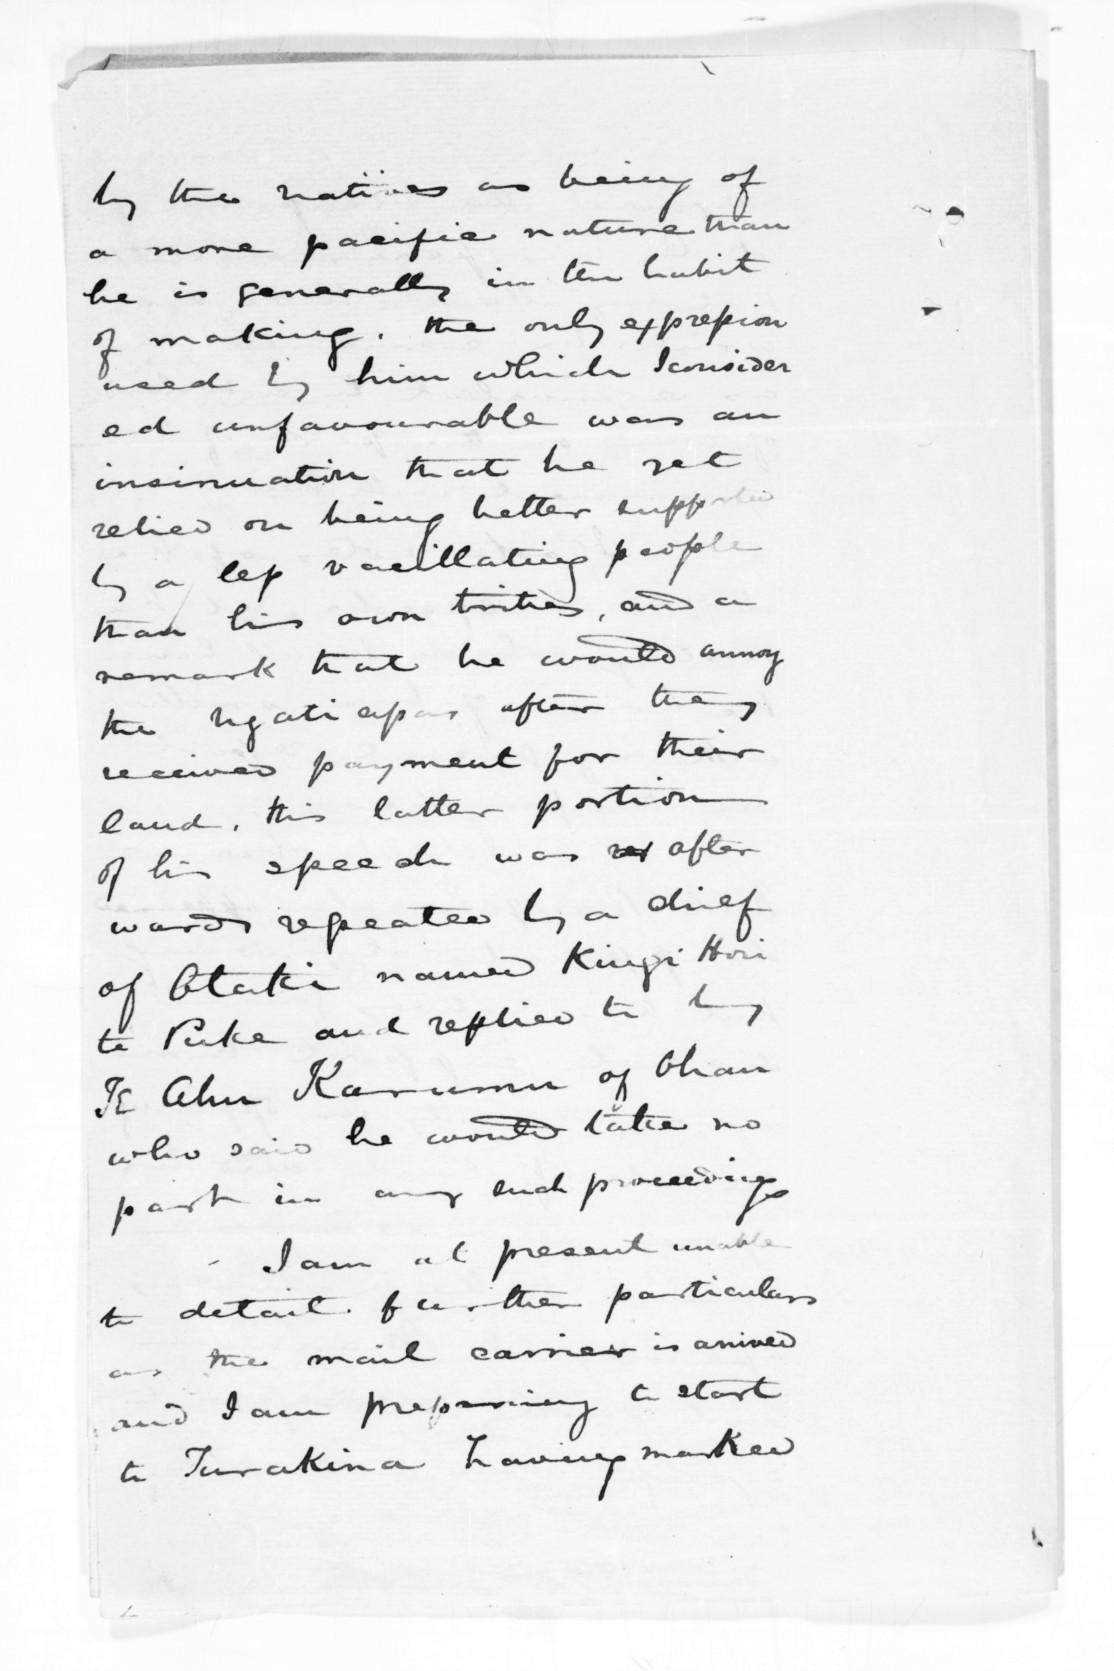 by the natives as being of
a more pacific nature than
he is generally in the habit
of making. the only expression
used by him which I consider
ed unfavourable was an
insinuation that he yet
relied on being better supported
by a less vacillating people
than his own tribes, and a
remark that he would annoy
the Ngatiapas after they
received payment for their
land, this latter portion
of his speech was after
wards repeated by a chief
of Otaki named Kingi Hori
te Puke and replied to by
Te Ahu Karumu of Ohau
who said he would take no
part in any such proceedings
- I am at present unable
to detail further particulars
as the mail carrier is arrived
and I am preparing to start
to Turakina having marked